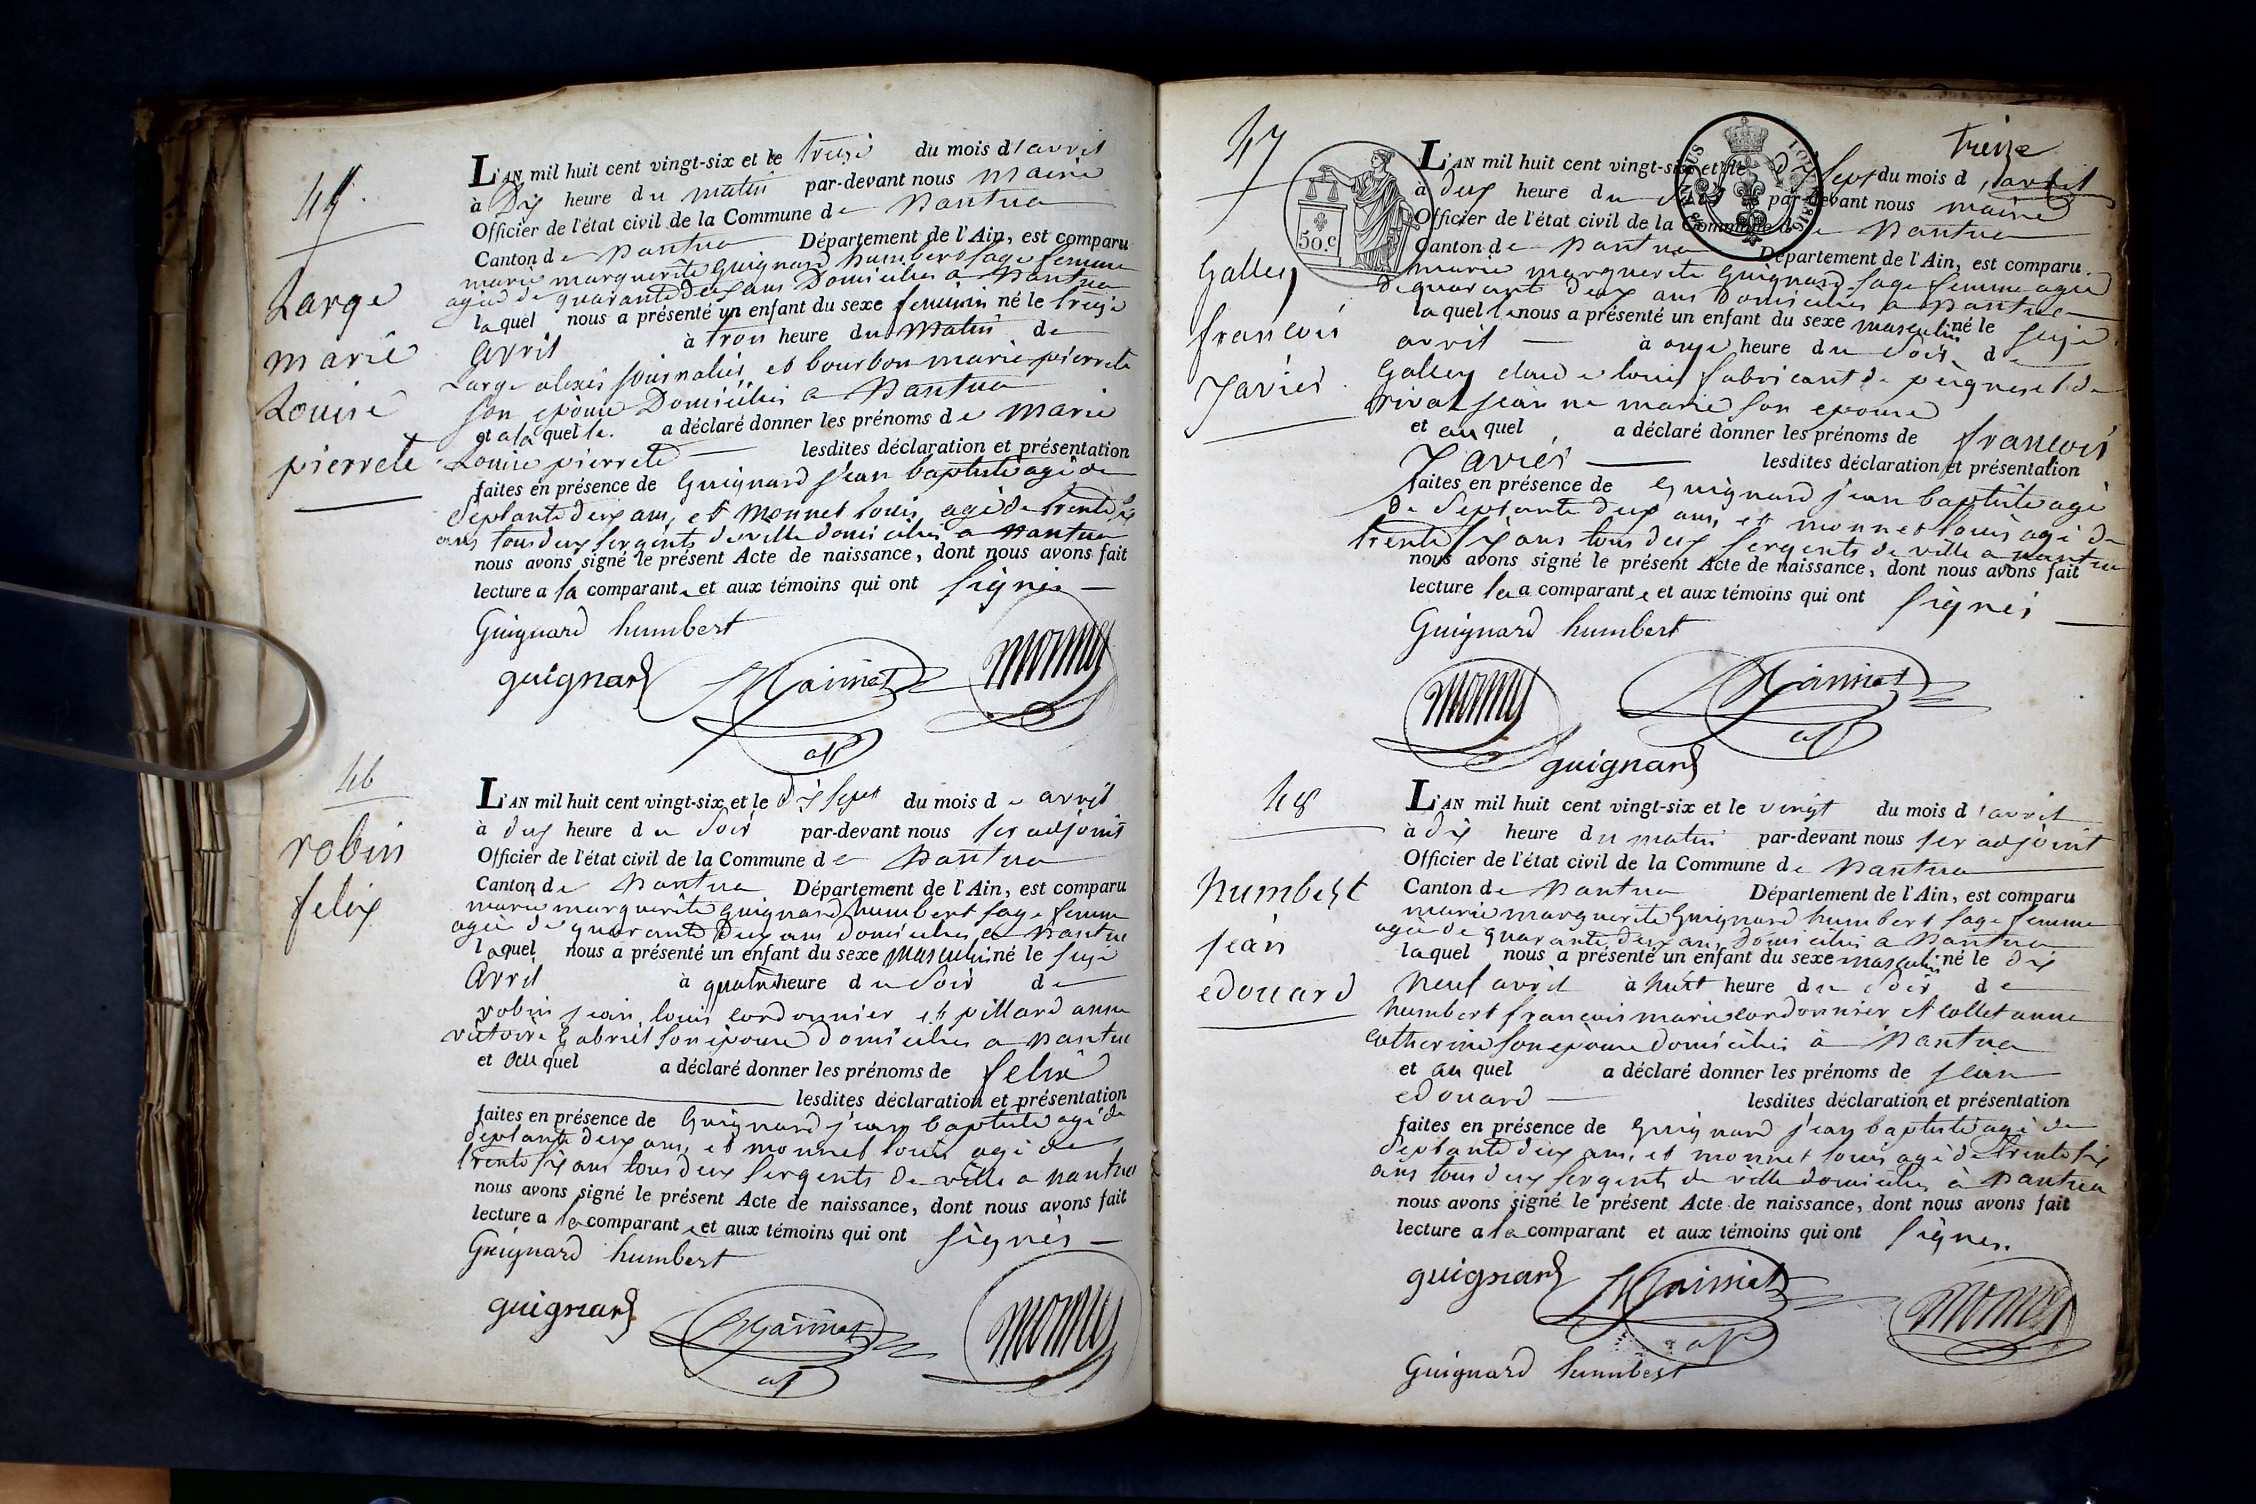 45
Large
marie
Louise
pierrete
L'AN mil huit cent vingt-six et le treize du mois d'avril
à Dix heure du matin par-devant nous maire
Officier de l'état civil de la Commune de Nantua
Canton de Nantua Département de l'Ain, est comparu
marie marguerite Guignard humbert sage femme
agée de quarante deux ans Domiciliée a Nantua
laquel nous a présenté un enfant du sexe feminin né le treize
avril à trois heure du Matin de
Large alexis journalier et bourbon marie pierrete
son epouse Domiciliés a Nantua
et a laquelle a déclaré donner les prénoms de marie
Louise pierrete lesdites déclaration et présentation
faites en présence de Guignard jean baptiste agé de
septante deux ans, et Monnet louis agé de trente six
ans tous deux sergents de ville domiciliés a Nantua
nous avons signé le présent Acte de naissance, dont nous avons fait
lecture a la comparante et aux témoins qui ont signés
Guignard humbert
guignard
46
robin
felix
L'AN mil huit cent vingt-six et le dix sept du mois de avril
à deux heure du soir par-devant nous 1er adjoint
Officier de l'état civil de la Commune de Nantua
Canton de Nantua Département de l'Ain, est comparu
marie marguerite guignard humbert sage femme
agée de quarante deux ans domiciliée a Nantua
laquel nous a présenté un enfant du sexe masculin né le seize
Avril à quatre heure du soir de
robin jean louis cordonnier et pillard anne
victoire Gabriel son epouse domiciliés a Nantua
et au quel a déclaré donner les prénoms de felix
lesdites déclaration et présentation
faites en présence de Guignard jean baptiste agé de
septante deux ans, et monnet louis agé de
trente six ans tous deux sergents de ville a nantua
nous avons signé le présent Acte de naissance, dont nous avons fait
lecture a la comparante et aux témoins qui ont signés
Guignard humbert
guignard
treize
47
50 c
Galley
francois
Xavier
L'AN mil huit cent vingt-six et le dix sept du mois d'avril
à deux heure du soir par-devant nous maire
Officier de l'état civil de la Commune de Nantua
Canton de Nantua Département de l'Ain, est comparu
marie marguerite Guignard sage femme agée
de quarante deux ans domiciliée a Nantua
laquelle nous a présenté un enfant du sexe masculin né le seize
avril à onze heure du soir de
Galley claude louis fabricant de peignes et de
rivat jeanne marie son epouse
et au quel a déclaré donner les prénoms de francois
Xavier lesdites déclaration et présentation
faites en présence de Guignard jean baptiste agé
de septante deux ans, et monnet louis agé de
trente six ans tous deux sergents de ville a nantua
nous avons signé le présent Acte de naissance, dont nous avons fait
lecture a la comparante et aux témoins qui ont signés
Guignard humbert
guignard
48
humbert
jean
edouard
L'AN mil huit cent vingt-six et le vingt du mois d'avril
à dix heure du matin par-devant nous 1er adjoint
Officier de l'état civil de la Commune de Nantua
Canton de Nantua Département de l'Ain, est comparu
marie marguerite Guignard humbert sage femme
agée de quarante deux ans domiciliée a Nantua
laquel nous a présenté un enfant du sexe masculin né le dix
neuf avril à huit heure du soir de
humbert francois marie cordonnier et collet anne
catherine son epouse domiciliés à Nantua
et au quel a déclaré donner les prénoms de jean
edouard lesdites déclaration et présentation
faites en présence de guignard jean baptiste agé de
septante deux ans, et monnet louis agé de trente six
ans tous deux sergents de ville domiciliés à Nantua
nous avons signé le présent Acte de naissance, dont nous avons fait
lecture a la comparant et aux témoins qui ont signés.
guignard
Guignard humbert